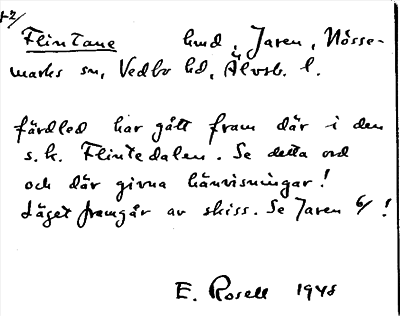 47/
Flintane hmd, Jaren, Nösse-
marks sn, Vedbo hd, Älvsb. l.
färdled har gått fram där i den
s.k. Flintedalen. Se detta ord
och där givna hänvisningar!
Läget framgår av skiss. Se Jaren 6/!
E. Rosell 1948